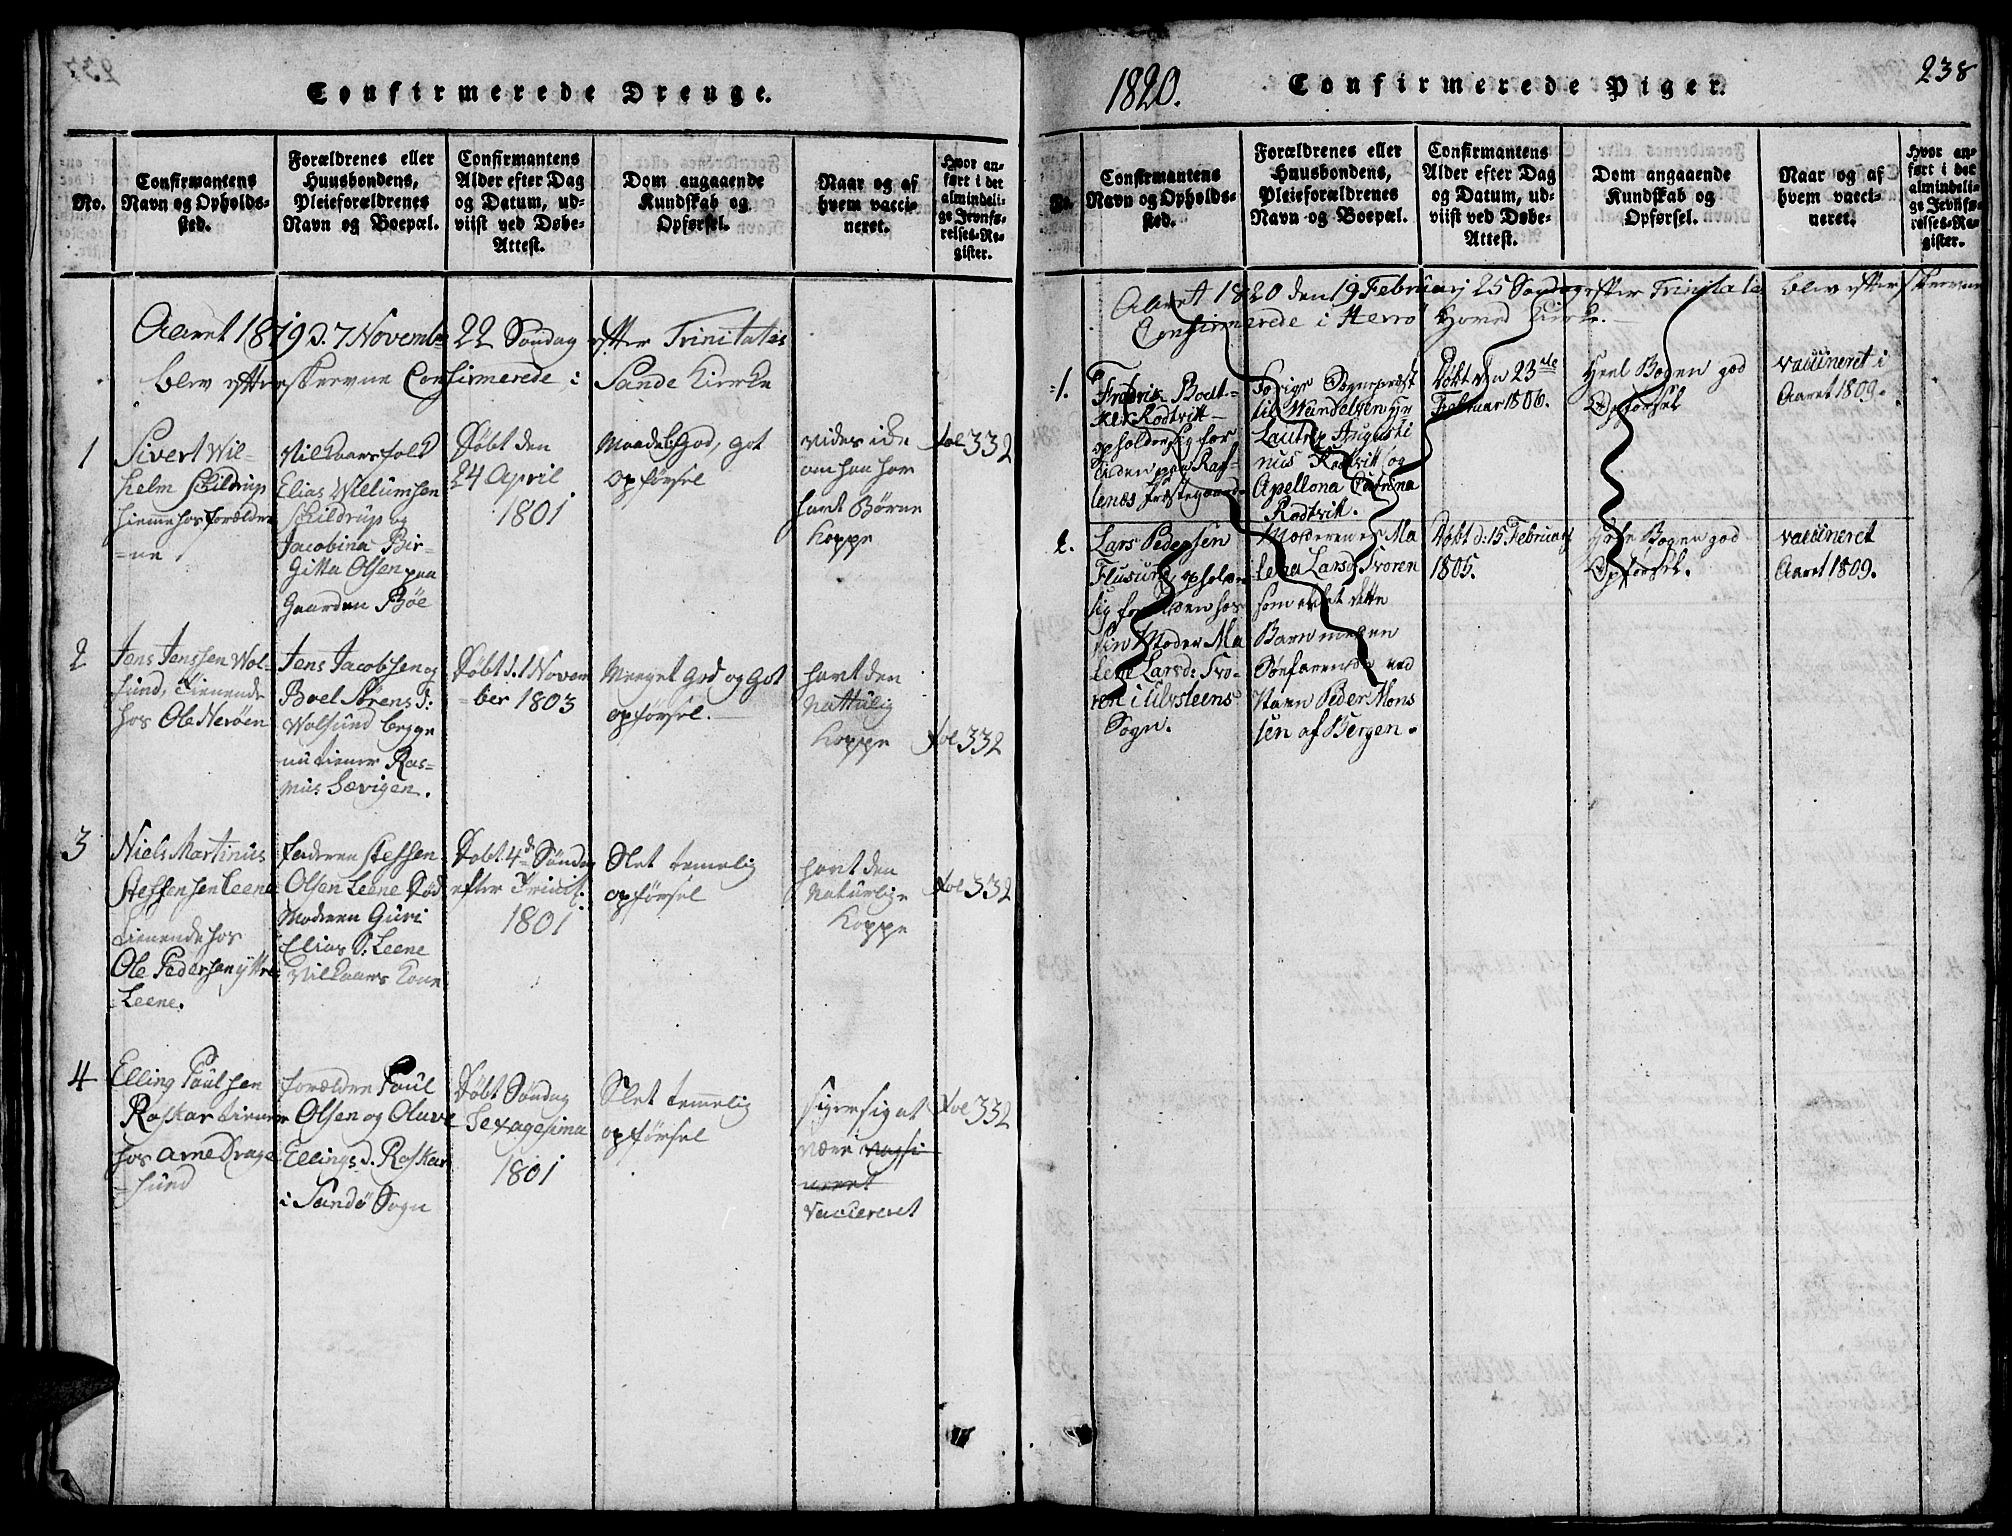 Confirmerede Drenge.
No.
Confirmantens
Navn og Opholds-
sted.
Forældrenes eller
Huusbondens,
Pleieforældrenes
Navn og Boepæl.
Confirmantens
Alder efter Dag
og Datum, ud-
viist ved Døbe-
Attest.
Dom angaaende
Kundskab og
Opførsel.
Naar og af
hvem vacci-
neret.
Hvor an-
ført i det
almindeli-
ge Jevnfø-
relses-Re-
gister.
Aaret 1819 d. 7 Novembr 22 Søndag efter Trinitatis
blev efterskrevne Confirmerede i Sande Kirke
1
Sivert Wil-
helm Skildrup
hiemme hos foreldre
-ne
Vilkaarsfolk
Elias Villumsen
Skildrup og
Jacobina Bir-
gitta Olsen paa
Gaarden Bøe
Døbt den
24 April
1801
Maadel. God, got
opførsel
vides ikke
om han har
havt Børne
Koppe
Fol 332
2
Jens Jenssen Vol-
sund, tienende
hos Ole Nerøen
Jens Jacobsen og
Boel Sørens d:
Volsund begge
nu tiener Ras-
mus Sævigen.
Døbt d. 1 Novem
-ber 1803
Meeget God og Got
opførsel.
havt den
Nattulig
Koppe
Fol 332
3
Niels Martinus
Steffensen Leene
tienende hos
Ole Pedersen yttre
Leene.
Faderen Steffen
Olsen Leene Død
Moderen Guri
Elias d. Leene
Vilkaars Kone
Døbt 4de Søndag
efter Trinit:
1801
Slet temelig
opførsel
havt den
Naturlige
Koppe
Fol 332
4
Elling Paulsen
Roskar tiener
hos Arne Drage
-sund
forældre Paul
Olsen og Oluve
Ellings d. Roskar
i Sandø Sogn
Døbt Søndag
Sexagesima
1801
Slet temelig
opførsel
siger sig at
være vagsi
neret
Vaccineret
Fol 332
1820.
Confirmerede Piger.
238
No.
Confirmantens
Navn og Opholds-
sted.
Forældrenes eller
Huusbondens,
Pleieforældrenes
Navn og Boepæl.
Confirmantens
Alder efter Dag
og Datum, ud-
viist ved Døbe-
Attest.
Dom angaaende
Kundskab og
Opførsel.
Naar og af
hvem vacci-
neret.
Hvor an-
ført i det
almindeli-
ge Jevnfø-
relses-Re-
gister.
Aaret 1820 den 19 Februarj 25 Søndag efter Trinitatis blev efterskrevne
Confirmerede i Herrø Hoved Kirke.
1.
Fredrik Bodt-
ker Rodtvitt
opholder sig for
tiden paa Raf-
lenæs Præstegaard
Forige Sognepræst
til Wandelven hr
Lautrip Augusti
nus Rodtvitt og
Apellona Catrina
Rodtvitt.
Døbt den 23de
Februar 1806.
Heel Bogen god
Opførsel
vaccineret i
Aaret 1809.
2.
Lars Pedersen
Flusund, opholder
sig for tiden hos
sin Moder Ma
lene Larsd: Tvo-
ren i Ulvsteens
Sogn.
Moderen er Ma
lena Larsd: Tvoren
som avlet dette
Barn med en
Søefarende ved
Navn Peder Mons
sen af Bergen.
Døbt d: 15 Februarj
1805.
Hele Bogen god
Opførsel.
vaccineret
Aaret 1809.